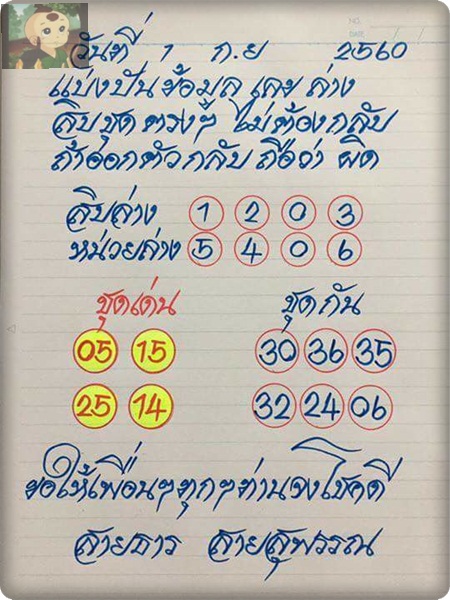 NO.
DATE / /
วันที่ 1 ก.ย 2560
แบ่งปันข้อมูล เลข ล่าง
สิบชุด ตรงๆ ไม่ต้องกลับ
ถ้าออกตัวกลับ ถือว่า ผิด
สิบล่าง 1 2 0 3
หน่วยล่าง 5 4 0 6
ชุดเด่น ชุดกัน
05 15 30 36 35
25 14 32 24 06
ขอให้เพื่อนๆทุกๆท่านจงโชคดี
สายธาร สายสุพรรณ